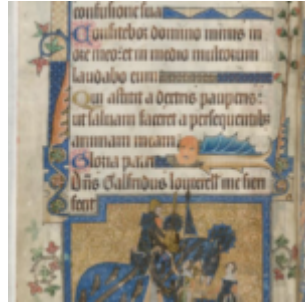 confusione sua
Confitebor domino nimis in
ore meo: et in medio multorum
laudabo eum
Qui astitit a dextris pauperis:
ut saluam faceret a persequentibus
animam meam
Gloria patri
Dñs Galfridus louterell me fieri
fecit